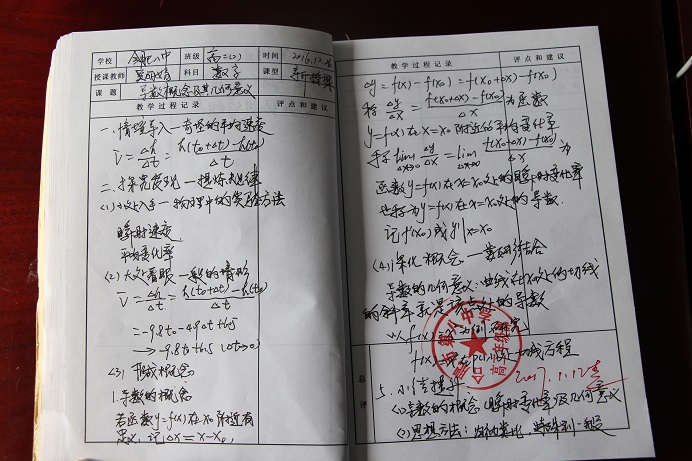 学校 合肥八中 班级 高二(2) 时间 2016.12.26
授课教师 科目 数学 课型 新授课
课题 导数概念及其几何意义
教学过程记录 评点和建议
一、情境导入—奇怪的平均速度
v̄ = Δh/Δt = (h(t₀+Δt)-h(t₀))/Δt
二、探究发现—提炼规律
(1) 小处入手—物理中的实验方法
瞬时速度
平均变化率
(2) 大处着眼—般的情形
v̄ = Δh/Δt = (h(t₀+Δt)-h(t₀))/Δt
= -9.8t₀-4.9Δt+6.5
→ -9.8t₀+6.5 (Δt→0)
(3) 形成概念
1.导数的概念
若函数y=f(x)在x₀附近有
定义,记Δx=x-x₀,
教学过程记录 评点和建议
Δy=f(x)-f(x₀)=f(x₀+Δx)-f(x₀)
称 Δy/Δx = (f(x₀+Δx)-f(x₀))/Δx 为函数
y=f(x)在x=x₀附近的平均变化率
称 lim Δx→0 Δy/Δx = lim Δx→0 (f(x₀+Δx)-f(x₀))/Δx 为
函数y=f(x)在x=x₀处的瞬时变化率
也称为y=f(x)在x=x₀处的导数.
记f'(x₀)或y'|x=x₀
(4) 深化概念—数形结合
导数的几何意义:曲线在x₀处的切线
的斜率就是该点处的导数
以f(x)=x²为例
切线方程
合肥市第八中学
高二年级
2017.1.12
总评
5.小结提升
(1) 导数的概念(瞬时变化率)及几何意义
(2) 思想方法:归纳类比,特殊到一般